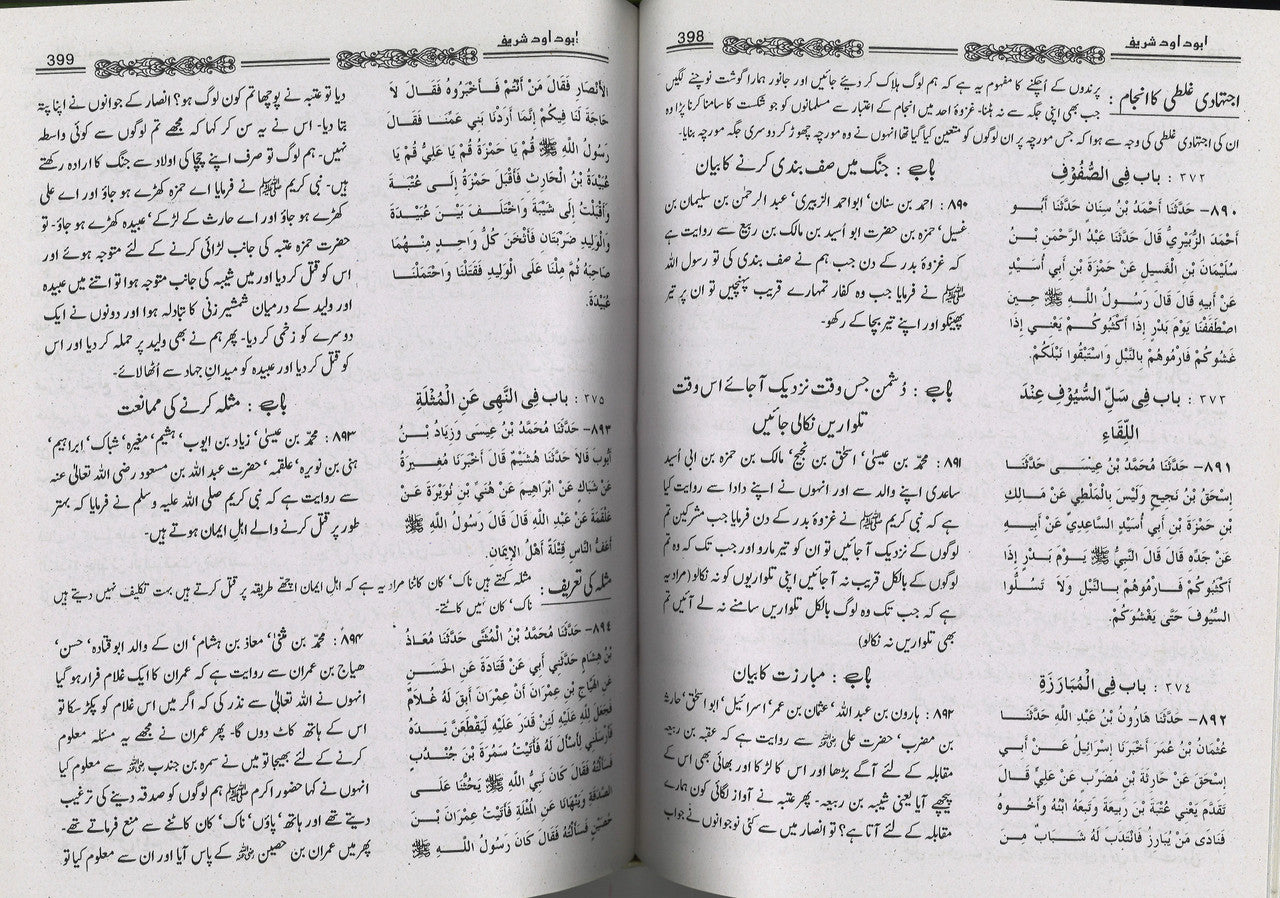 ابوداود شریف
398
اجتہادی غلطی کا انجام :
پرندوں کے اُچکنے کا مفہوم یہ ہے کہ ہم لوگ ہلاک کر دیئے جائیں اور جانور ہمارا گوشت نوچنے لگیں
جب بھی اپنی جگہ سے نہ ہٹنا۔ غزوۂ احد میں انجام کے اعتبار سے مسلمانوں کو جو شکست کا سامنا کرنا پڑا وہ
ان کی اجتہادی غلطی کی وجہ سے ہوا کہ جس مورچہ پر ان لوگوں کو متعین کیا گیا تھا انہوں نے وہ مورچہ چھوڑ کر دوسری جگہ مورچہ بنایا۔
۳۷۲ : باب فِی الصُّفُوْفِ
۸۹۰- حَدَّثَنَا أَحْمَدُ بْنُ سِنَانٍ حَدَّثَنَا أَبُو
أَحْمَدَ الزُّبَيْرِيُّ قَالَ حَدَّثَنَا عَبْدُ الرَّحْمَنِ بْنُ
سُلَيْمَانَ بْنِ الْغَسِيلِ عَنْ حَمْزَةَ بْنِ أَبِي أُسَيْدٍ
عَنْ أَبِيهِ قَالَ قَالَ رَسُولُ اللَّهِ ﷺ حِينَ
اصْطَفَفْنَا يَوْمَ بَدْرٍ إِذَا أَكْثَبُوكُمْ يَعْنِي إِذَا
غَشُوكُمْ فَارْمُوهُمْ بِالنَّبْلِ وَاسْتَبْقُوا نَبْلَكُمْ۔
باب : جنگ میں صف بندی کرنے کا بیان
۸۹۰ : احمد بن سنان‘ ابواحمد الزبیری‘ عبد الرحمٰن بن سلیمان بن
غسیل‘ حمزہ بن حضرت ابو اُسید بن مالک بن ربیع سے روایت ہے
کہ غزوۂ بدر کے دن جب ہم نے صف بندی کی تو رسول اللہ
ﷺ نے فرمایا جب وہ کفار تمہارے قریب پہنچیں تو ان پر تیر
پھینکو اور اپنے تیر بچا کے رکھو۔
۳۷۳ : باب فِی سَلِّ السُّيُوْفِ عِنْدَ
اللِّقَاءِ
۸۹۱- حَدَّثَنَا مُحَمَّدُ بْنُ عِيسَى حَدَّثَنَا
إِسْحٰقُ بْنُ نَجِيحٍ وَلَيْسَ بِالْمَلَطِيِّ عَنْ مَالِكِ
بْنِ حَمْزَةَ بْنِ أَبِي أُسَيْدٍ السَّاعِدِيِّ عَنْ أَبِيهِ
عَنْ جَدِّهِ قَالَ قَالَ النَّبِيُّ ﷺ يَوْمَ بَدْرٍ إِذَا
أَكْثَبُوكُمْ فَارْمُوهُمْ بِالنَّبْلِ وَلَا تَسُلُّوا
السُّيُوفَ حَتَّى يَغْشُوكُمْ۔
باب : دُشمن جس وقت نزدیک آ جائے اس وقت
تلواریں نکالی جائیں
۸۹۱ : محمّد بن عیسیٰ‘ اسحٰق بن نجیح‘ مالک بن حمزہ بن ابی اُسید
ساعدی اپنے والد سے اور انہوں نے اپنے دادا سے روایت کیا
ہے کہ نبی کریم ﷺ نے غزوۂ بدر کے دن فرمایا جب مشرکین تم
لوگوں کے نزدیک آ جائیں تو ان کو تیر مارو اور جب تک کہ وہ تم
لوگوں کے بالکل قریب نہ آ جائیں اپنی تلواریوں کو نہ نکالو (مراد یہ
ہے کہ جب تک وہ لوگ بالکل تلواریں سامنے نہ لے آئیں تم
بھی تلواریں نہ نکالو)
۳۷۴ : باب فِی الْمُبَارَزَةِ
۸۹۲- حَدَّثَنَا هَارُونُ بْنُ عَبْدِ اللَّهِ حَدَّثَنَا
عُثْمَانُ بْنُ عُمَرَ أَخْبَرَنَا إِسْرَائِيلُ عَنْ أَبِي
إِسْحٰقَ عَنْ حَارِثَةَ بْنِ مُضَرِّبٍ عَنْ عَلِيٍّ قَالَ
تَقَدَّمَ يَعْنِي عُتْبَةَ بْنَ رَبِيعَةَ وَتَبِعَهُ ابْنُهُ وَأَخُوهُ
فَنَادَى مَنْ يُبَارِزُ فَانْتَدَبَ لَهُ شَبَابٌ مِنَ
باب : مبارزت کا بیان
۸۹۲ : ہارون بن عبد اللہ‘ عثمان بن عمر‘ اسرائیل‘ ابو اسحٰق‘ حارثہ
بن مضرب‘ حضرت علی رضی اللہ عنہ سے روایت ہے کہ عقبہ بن ربیعہ
مقابلہ کے لئے آگے بڑھا اور اس کا لڑکا اور بھائی بھی اس کے
پیچھے آیا یعنی شیبہ بن ربیعہ۔ پھر عتبہ نے آواز لگائی کون ہمارے
مقابلہ کے لئے آتا ہے؟ تو انصار میں سے کئی نوجوانوں نے جواب
ابوداود شریف
399
الْأَنْصَارِ فَقَالَ مَنْ أَنْتُمْ فَأَخْبَرُوهُ فَقَالَ لَا
حَاجَةَ لَنَا فِيكُمْ إِنَّمَا أَرَدْنَا بَنِي عَمِّنَا فَقَالَ
رَسُولُ اللَّهِ ﷺ قُمْ يَا حَمْزَةُ قُمْ يَا عَلِيُّ قُمْ يَا
عُبَيْدَةُ بْنُ الْحَارِثِ فَأَقْبَلَ حَمْزَةُ إِلَى عُتْبَةَ
وَأَقْبَلْتُ إِلَى شَيْبَةَ وَاخْتَلَفَ بَيْنَ عُبَيْدَةَ
وَالْوَلِيدِ ضَرْبَتَانِ فَأَثْخَنَ كُلُّ وَاحِدٍ مِنْهُمَا
صَاحِبَهُ ثُمَّ مِلْنَا عَلَى الْوَلِيدِ فَقَتَلْنَاهُ وَاحْتَمَلْنَا
عُبَيْدَةَ۔
دیا تو عتبہ نے پوچھا تم کون لوگ ہو؟ انصار کے جوانوں نے اپنا پتہ
بتا دیا۔ اس نے یہ سن کر کہا کہ مجھے تم لوگوں سے کوئی واسطہ
نہیں۔ ہم لوگ تو صرف اپنے چچا کی اولاد سے جنگ کا ارادہ رکھتے
ہیں۔ نبی کریم ﷺ نے فرمایا اے حمزہ کھڑے ہو جاؤ اور اے علی
کھڑے ہو جاؤ اور اے حارث کے لڑکے‘ عبیدہ کھڑے ہو جاؤ۔ تو
حضرت حمزہ عتبہ کی جانب لڑائی کرنے کے لئے متوجہ ہوئے اور
اس کو قتل کر دیا اور میں شیبہ کی جانب متوجہ ہوا تو اتنے میں عبیدہ
اور ولید کے درمیان شمشیر زنی کا تبادلہ ہوا اور دونوں نے ایک
دوسرے کو زخمی کر دیا۔ پھر ہم نے بھی ولید پر حملہ کر دیا اور اس
کو قتل کر دیا اور عبیدہ کو میدانِ جہاد سے اُٹھا لائے۔
۳۷۵ : باب فِی النَّهْیِ عَنِ الْمُثْلَةِ
۸۹۳- حَدَّثَنَا مُحَمَّدُ بْنُ عِيسَى وَزِيَادُ بْنُ
أَيُّوبَ قَالَا حَدَّثَنَا هُشَيْمٌ قَالَ أَخْبَرَنَا مُغِيرَةُ
عَنْ شِبَاكٍ عَنْ ابْرَاهِيمَ عَنْ هُنَيِّ بْنِ نُوَيْرَةَ عَنْ
عَلْقَمَةَ عَنْ عَبْدِ اللَّهِ قَالَ قَالَ رَسُولُ اللَّهِ ﷺ
أَعَفُّ النَّاسِ قِتْلَةً أَهْلُ الْإِيمَانِ۔
باب : مثلہ کرنے کی ممانعت
۸۹۳ : محمّد بن عیسیٰ‘ زیاد بن ایوب‘ ہشیم‘ مغیرہ‘ شباک‘ ابراہیم‘
ہنی بن نویرہ‘ علقمہ‘ حضرت عبد اللہ بن مسعود رضی اللہ تعالیٰ عنہ
سے روایت ہے کہ نبی کریم صلی اللہ علیہ وسلم نے فرمایا کہ بہتر
طور پر قتل کرنے والے اہلِ ایمان ہوتے ہیں۔
مثلہ کی تعریف :
مثلہ کہتے ہیں ناک‘ کان کاٹنا مراد یہ ہے کہ اہلِ ایمان اچھے طریقہ پر قتل کرتے ہیں بہت تکلیف نہیں دیتے ہیں
ناک‘ کان نہیں کاٹتے۔
۸۹۴- حَدَّثَنَا مُحَمَّدُ بْنُ الْمُثَنَّى حَدَّثَنَا مُعَاذُ
بْنُ هِشَامٍ حَدَّثَنِي أَبِي عَنْ قَتَادَةَ عَنِ الْحَسَنِ
عَنِ الْهَيَّاجِ بْنِ عِمْرَانَ أَنَّ عِمْرَانَ أَبَقَ لَهُ غُلَامٌ
فَجَعَلَ لِلَّهِ عَلَيْهِ لَئِنْ قَدَرَ عَلَيْهِ لَيَقْطَعَنَّ يَدَهُ
فَأَرْسَلَنِي لِأَسْأَلَ لَهُ فَأَتَيْتُ سَمُرَةَ بْنَ جُنْدُبٍ
فَسَأَلْتُهُ فَقَالَ كَانَ نَبِيُّ اللَّهِ ﷺ يَحُثُّنَا عَلَى
الصَّدَقَةِ وَيَنْهَانَا عَنِ الْمُثْلَةِ فَأَتَيْتُ عِمْرَانَ بْنَ
حُصَيْنٍ فَسَأَلْتُهُ فَقَالَ كَانَ رَسُولُ اللَّهِ ﷺ
۸۹۴ : محمّد بن مثنٰی‘ معاذ بن ہشام‘ ان کے والد ابوقتادہ‘ حسن‘
ھیاج بن عمران سے روایت ہے کہ عمران کا ایک غلام فرار ہو گیا
انہوں نے اللہ تعالیٰ سے نذر کی کہ اگر میں اس غلام کو پکڑ سکا تو
اس کے ہاتھ کاٹ دوں گا۔ پھر عمران نے مجھے یہ مسئلہ معلوم
کرنے کے لئے بھیجا تو میں نے سمرہ بن جندب رضی اللہ عنہ سے معلوم کیا
انہوں نے کہا حضور اکرم ﷺ ہم لوگوں کو صدقہ دینے کی ترغیب
دیتے تھے اور ہاتھ‘ پاؤں‘ ناک‘ کان کاٹنے سے منع فرماتے تھے۔
پھر میں عمران بن حصین رضی اللہ عنہ کے پاس آیا اور ان سے معلوم کیا تو